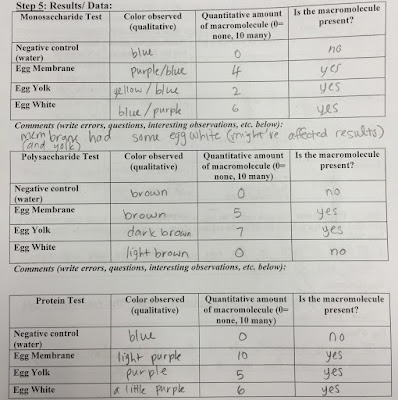 Step 5: Results/ Data:
Monosaccharide Test | Color observed (qualitative) | Quantitative amount of macromolecule (0= none, 10 many) | Is the macromolecule present?
Negative control (water) | blue | 0 | no
Egg Membrane | purple/blue | 4 | yes
Egg Yolk | yellow/blue | 2 | yes
Egg White | blue/purple | 6 | yes
Comments (write errors, questions, interesting observations, etc. below):
membrane had some egg white (might've affected results)
(and yolk)
Polysaccharide Test | Color observed (qualitative) | Quantitative amount of macromolecule (0= none, 10 many) | Is the macromolecule present?
Negative control (water) | brown | 0 | no
Egg Membrane | brown | 5 | yes
Egg Yolk | dark brown | 7 | yes
Egg White | light brown | 0 | no
Comments (write errors, questions, interesting observations, etc. below):
Protein Test | Color observed (qualitative) | Quantitative amount of macromolecule (0= none, 10 many) | Is the macromolecule present?
Negative control (water) | blue | 0 | no
Egg Membrane | light purple | 10 | yes
Egg Yolk | purple | 5 | yes
Egg White | a little purple | 6 | yes